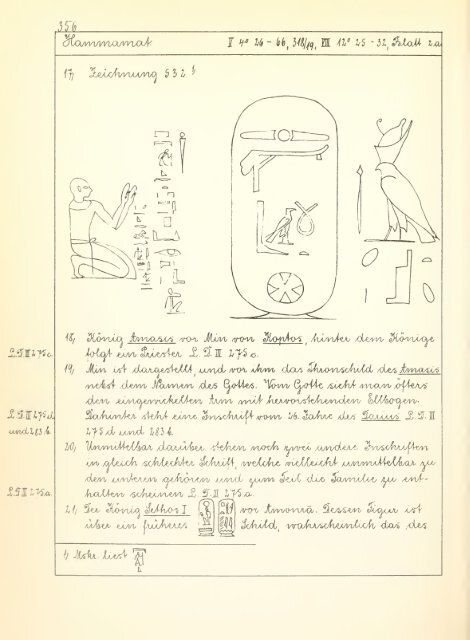 356
Hammamat II 4° 26 - 66, 318/19, VIII 12° 25 - 32, Blatt 2.a
17, Zeichnung 532 1)
18, König Amasis vor Min von Koptos, hinter dem Könige
L.D. III 275c. folgt ein Priester L.D. III 275 c.
19, Min ist dargestellt, und vor ihm das Thronschild des Amasis
nebst dem Namen des Gottes. Vom Gotte sieht man öfters
den eingewickelten Arm mit hervorstehenden Ellbogen.
L.D. III 275d. Dahinter steht eine Inschrift vom 26. Jahre des Darius L.D. III
und 283 h. 275 d und 283 h.
20, Unmittelbar darüber stehen noch zwei andere Inschriften
in gleich schlechter Schrift, welche vielleicht unmittelbar zu
den unteren gehören und zum Teil die Familie zu ent-
L.D. III 275a. halten scheinen L.D. III 275 a.
21, Der König Sethos I vor Amonrâ. Dessen Figur ist
über ein früheres Schild, wahrscheinlich das des
1) Mskr. liest